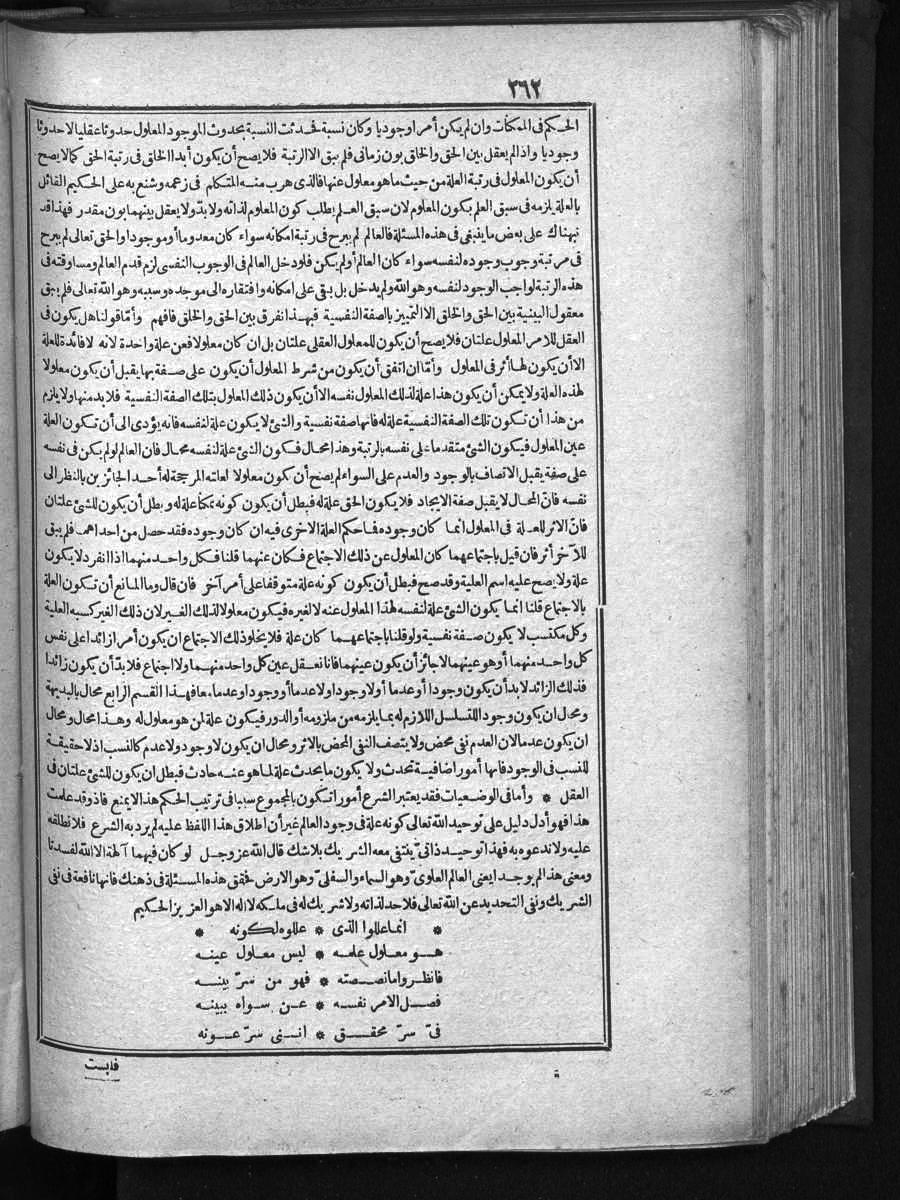 ٢٦٢
الحكم في الممكنات وان لم يكن أمرا وجوديا وكان نسبة فحدثت النسبة بحدوث الموجود المعلول حدوثا عقليا لا حدوثا
وجوديا واذا لم يعقل بين الحق والخلق بون زماني فلم يبق الا الرتبة فلا يصح أن يكون أبدا الخلق في رتبة الحق كما لا يصح
أن يكون المعلول في رتبة العلة من حيث ما هو معلول عنها فالذي هرب منه المتكلم في زعمه وشنع به على الحكيم القائل
بالعلة يلزمه في سبق العلم بكون المعلوم لان سبق العلم يطلب كون المعلوم لذاته ولا بدّ ولا يعقل بينهما بون مقدر فهذا قد
نبهناك على بعض ما ينبغي في هذه المسئلة فالعالم لم يبرح في رتبة امكانه سواء كان معدوما أو موجودا والحق تعالى لم يبرح
في مرتبة وجوب وجوده لنفسه سواء كان العالم أو لم يكن فلو دخل العالم في الوجوب النفسي لزم قدم العالم ومساوقته في
هذه الرتبة لواجب الوجود لنفسه وهو الله ولم يدخل بل بقي على امكانه وافتقاره الى موجده وسببه وهو الله تعالى فلم يبق
معقول البينية بين الحق والخلق الا التمييز بالصفة النفسية فبهذا نفرق بين الحق والخلق فافهم وأمّا قولنا هل يكون في
العقل للامر المعلول علتان فلا يصح أن يكون للمعلول العقلي علتان بل ان كان معلولا فعن علة واحدة لانه لا فائدة للعلة
الا أن يكون لها أثر في المعلول وأمّا ان اتفق أن يكون من شرط المعلول أن يكون على صفة بها يقبل أن يكون معلولا
لهذه العلة ولا يمكن أن يكون هذا علة لذلك المعلول نفسه الا أن يكون ذلك المعلول بتلك الصفة النفسية فلا بد منها ولا يلزم
من هذا أن تكون تلك الصفة النفسية علة له فانها صفة نفسية والشئ لا يكون علة لنفسه فانه يؤدي الى أن تكون العلة
عين المعلول فيكون الشئ متقدما على نفسه بالرتبة وهذا محال فكون الشئ علة لنفسه محال فان العالم لو لم يكن في نفسه
على صفة يقبل الاتصاف بالوجود والعدم على السواء لم يصح أن يكون معلولا لعلته المرجحة له أحد الجائزين بالنظر الى
نفسه فانّ المحال لا يقبل صفة الايجاد فلا يكون الحق علة له فبطل أن يكون كونه ممكنا علة له وبطل أن يكون للشئ علتان
فانّ الاثر للعلة في المعلول انما كان وجوده فاحكم العلة الاخرى فيه ان كان وجوده فقد حصل من احداهما فلم يبق
للآخر أثر فان قيل باجتماعهما كان المعلول عن ذلك الاجتماع فكان عنهما قلنا فكل واحد منهما اذا انفرد لا يكون
علة ولا يصح عليه اسم العلية وقد صح فبطل أن يكون كونه علة متوقفا على أمر آخر فان قال وما المانع أن تكون العلة
بالاجتماع قلنا انما يكون الشئ علة لنفسه لهذا المعلول عنه لا لغيره فيكون معلولا لذلك الغير لان ذلك الغير كسبه العلية
وكل مكتسب لا يكون صفة نفسية ولو قلنا باجتماعهما كان علة فلا يخلو ذلك الاجتماع ان يكون أمرا زائدا على نفس
كل واحد منهما أو هو عينهما لا جائز أن يكون عينهما فانا نعقل عين كل واحد منهما ولا اجتماع فلا بدّ أن يكون زائدا
فذلك الزائد لا بد أن يكون وجودا أو عدما أو لا وجودا ولا عدما أو وجودا وعدما معا فهذا القسم الرابع محال بالبديهة
ومحال ان يكون وجودا للتسلسل اللازم له بما يلزمه من ملزومه أو الدور فيكون علة لمن هو معلول له وهذا محال ومحال
ان يكون عدما لان العدم نفي محض ولا يتصف النفي المحض بالاثر ومحال ان يكون لا وجود ولا عدم كالنسب اذ لا حقيقة
للنسب في الوجود فانها أمور اضافية تحدث ولا يكون ما يحدث علة لما هو عنه حادث فبطل ان يكون للشئ علتان في
العقل * وأما في الوضعيات فقد يعتبر الشرع أمورا تكون بالمجموع سببا في ترتيب الحكم هذا لا يمنع فاذ وقد علمت
هذا فهو أدل دليل على توحيد الله تعالى كونه علة في وجود العالم غير أن اطلاق هذا اللفظ عليه لم يرد به الشرع فلا نطلقه
عليه ولا ندعوه به فهذا توحيد ذاتيّ ينتفي معه الشريك بلا شك قال الله عز وجل لو كان فيهما آلهة الا الله لفسدتا
ومعنى هذا لم يوجد ايعني العالم العلويّ وهو السماء والسفليّ وهو الارض فحقق هذه المسئلة في ذهنك فانها نافعة في نفي
الشريك ونفي التحديد عن الله تعالى فلا حد لذاته ولا شريك له في ملكه لا اله الا هو العزيز الحكيم
* انما عللوا الذي * عللوه لكونه *
هو معلول علمه * ليس معلول عينه
فانظروا ما نصصته * فهو من سرّ بينه
فصل الامر نفسه * عن سواه ببينه
فيّ سرّ محقق * انني سرّ عونه
فلبست